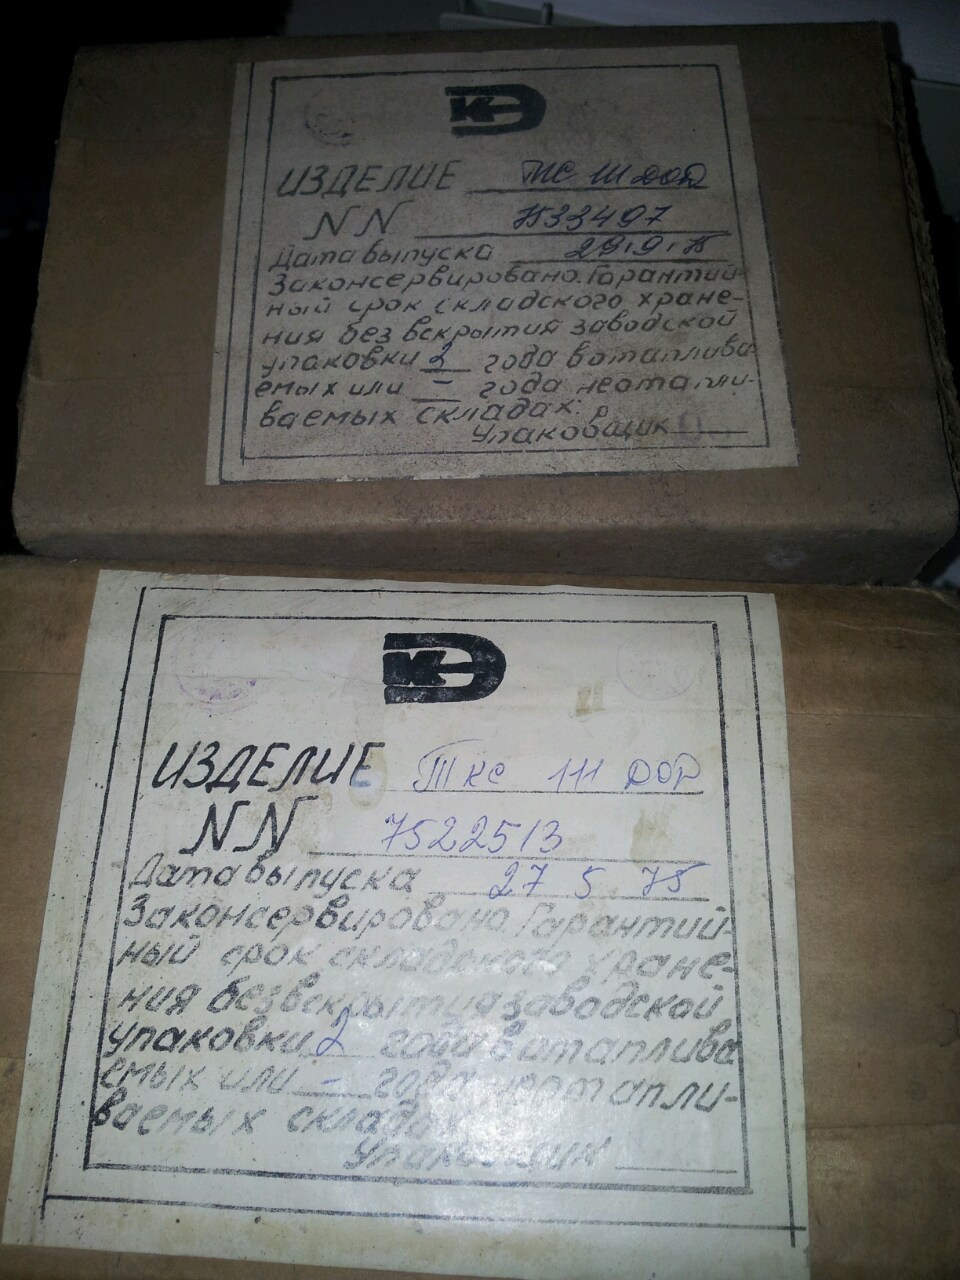 КЭ
ИЗДЕЛИЕ ТКС 111 ДОД
NN 7533497
Дата выпуска 29.9.75
Законсервировано. Гарантий-
ный срок складского хране-
ния без вскрытия заводской
упаковки 2 года в отаплива
емых или – года неотапли-
ваемых складах:
Упаковщик
КЭ
ИЗДЕЛИЕ ТКС 111 ДОД
NN 7522513
Дата выпуска 27 5 75
Законсервировано. Гарантий-
ный срок складского хране-
ния без вскрытия заводской
упаковки 2 года в отаплива
емых или – года неотапли-
ваемых складах
Упаковщик